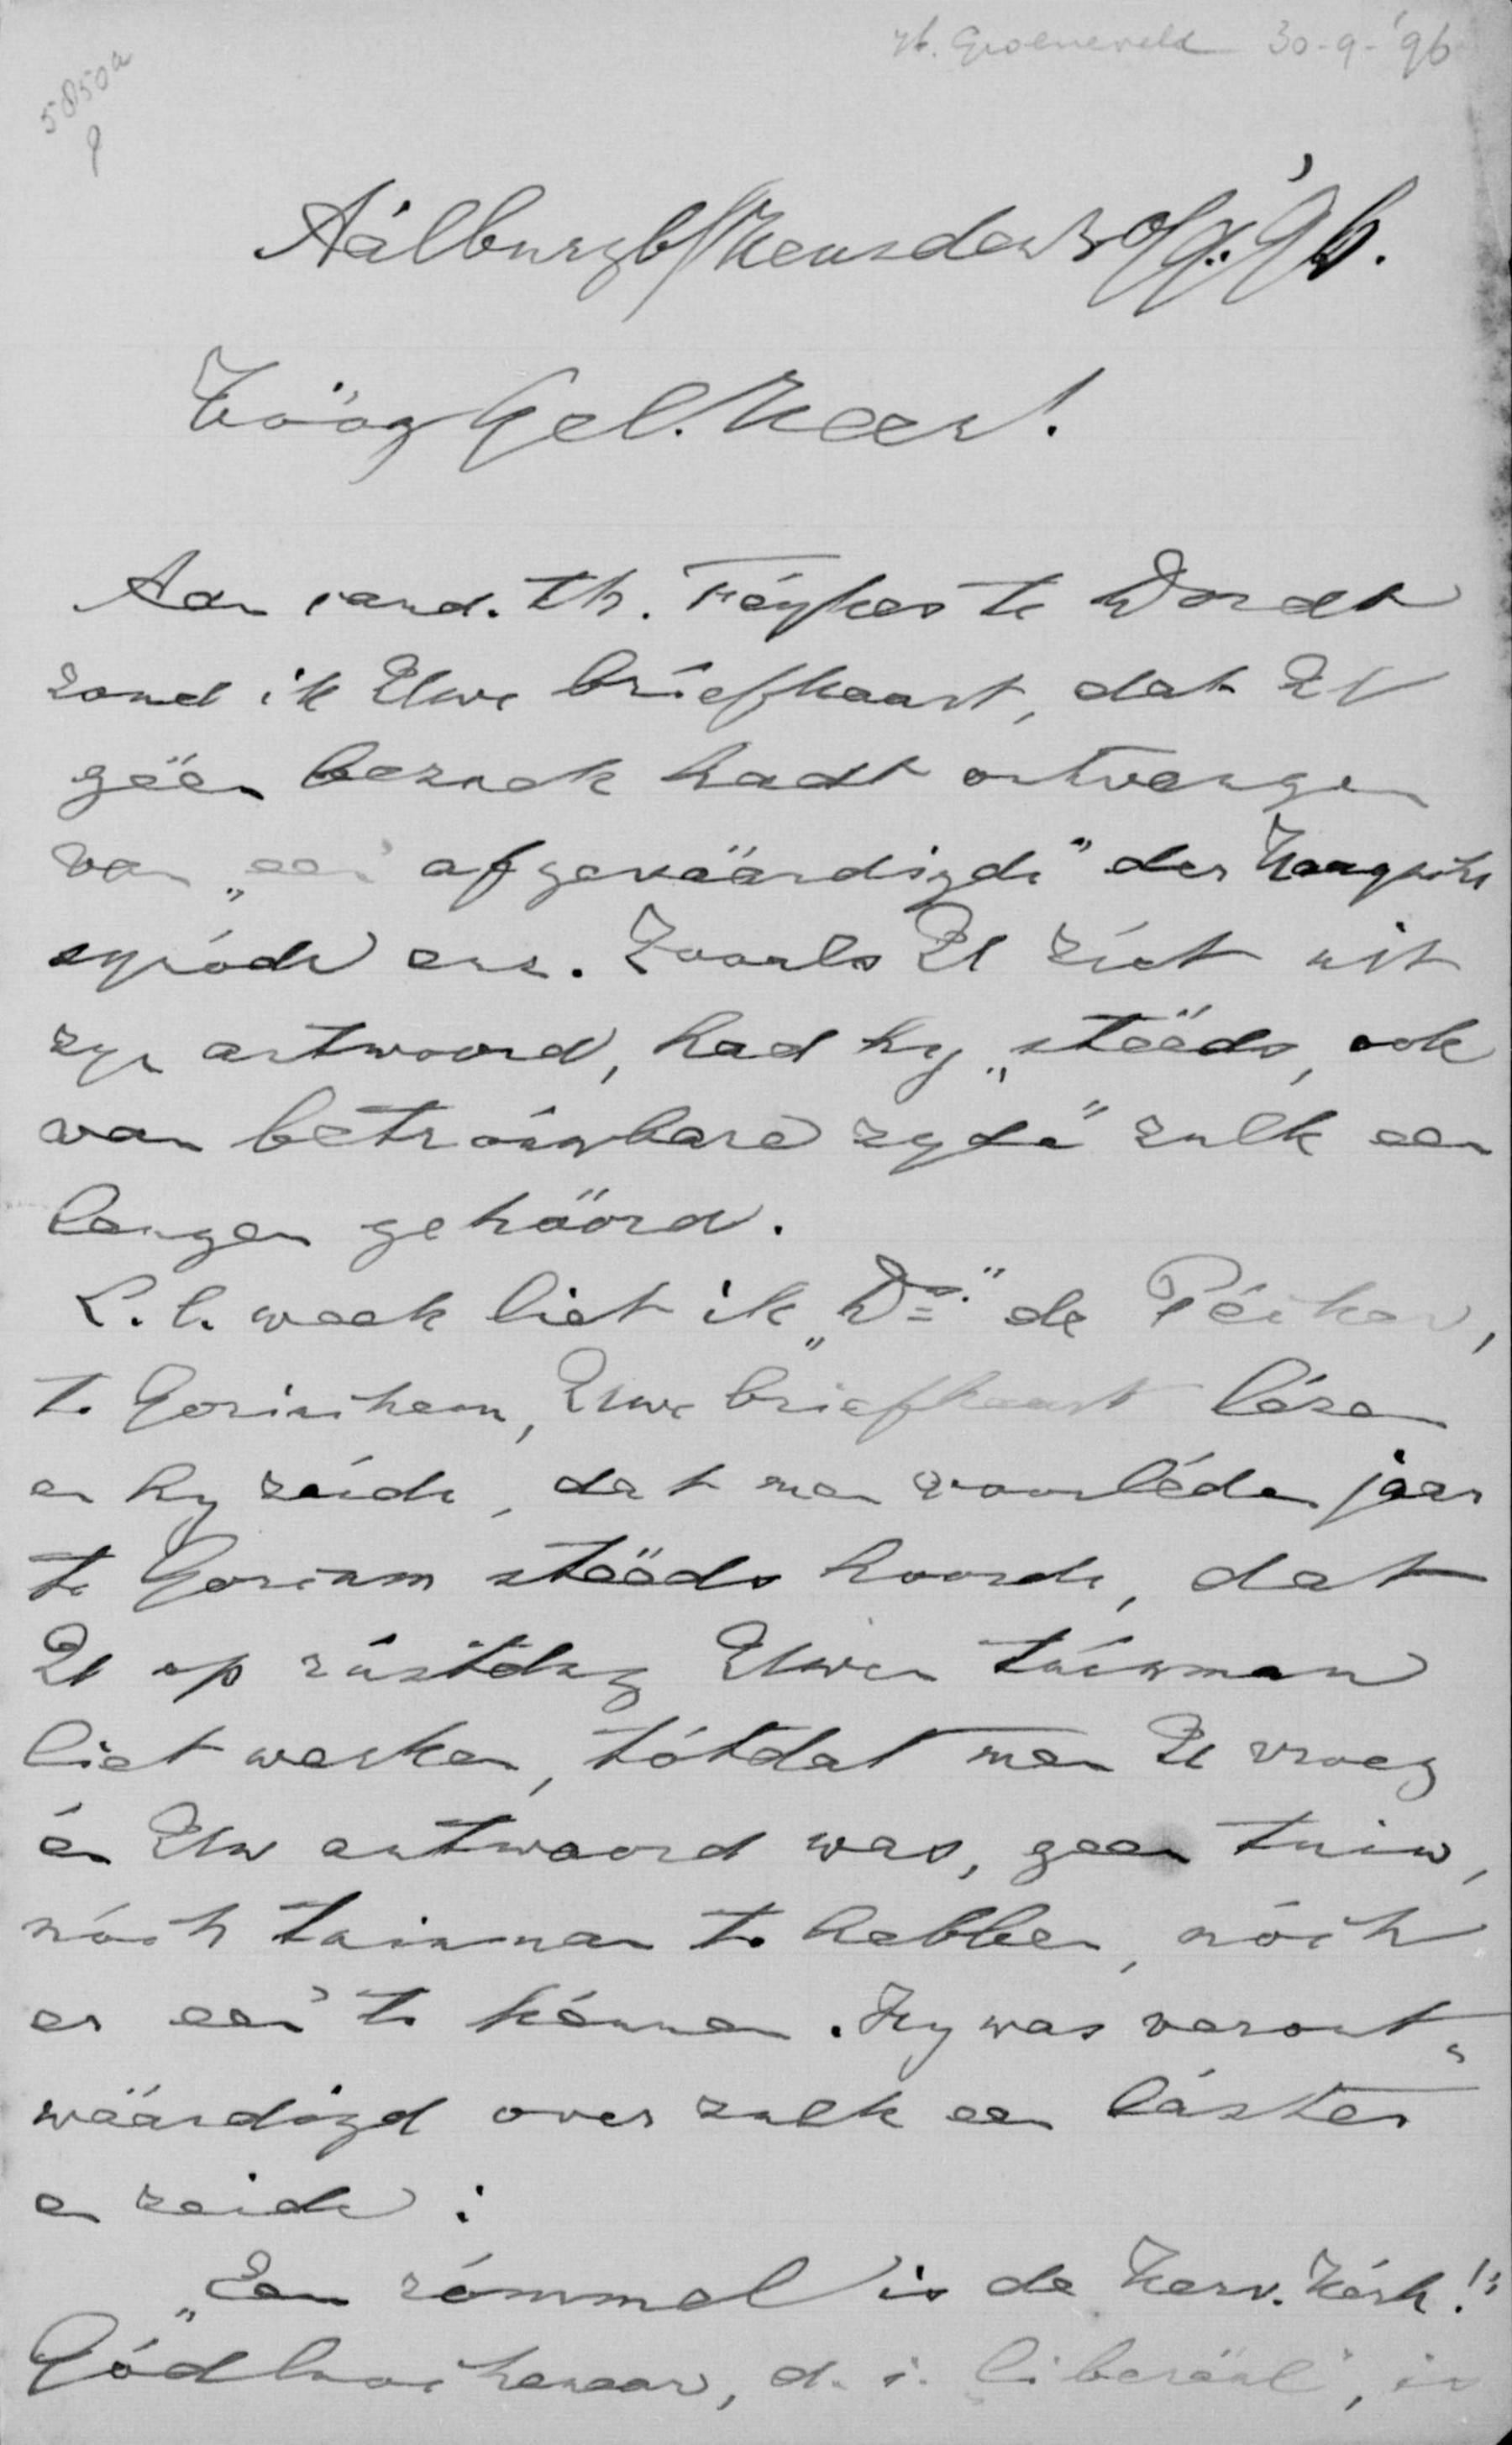 H. Groeneveld 30-9-'96
5850a
Aálburg b/Heusden 30/9.'96.
Höög Gel. Heer!
Aan cand. th. Féykes te Dordt
zond ik Uwe briefkaart, dat U
géén bezoek hadt ontvangen
van „een afgeväärdigde" der Haagsche
synode enz. Zooals U ziet uit
zyn antwoord, had hy „stééds, ook
van betróuwbare zyde" zulk een
leugen gehöórd.
L.l. week liet ik „Ds." de
te Gorinchem, Uwe briefkaart lézen
en hy zéide, dat men voorléden jaar
te Gorcum stééds hoorde, dat
U op rústdag Uwen túinman
liet werken, tótdat men U vroeg
én Uw antwoord was, geen tuin,
nóch tuinman te hebben, nóch
er een te kénnen. Hy was veront„
wäärdigd over zulk een láster
en zeide:
„Een rómmel is de Herv. Kérk!"
Gódloochenaar, d. i. liberäál, is